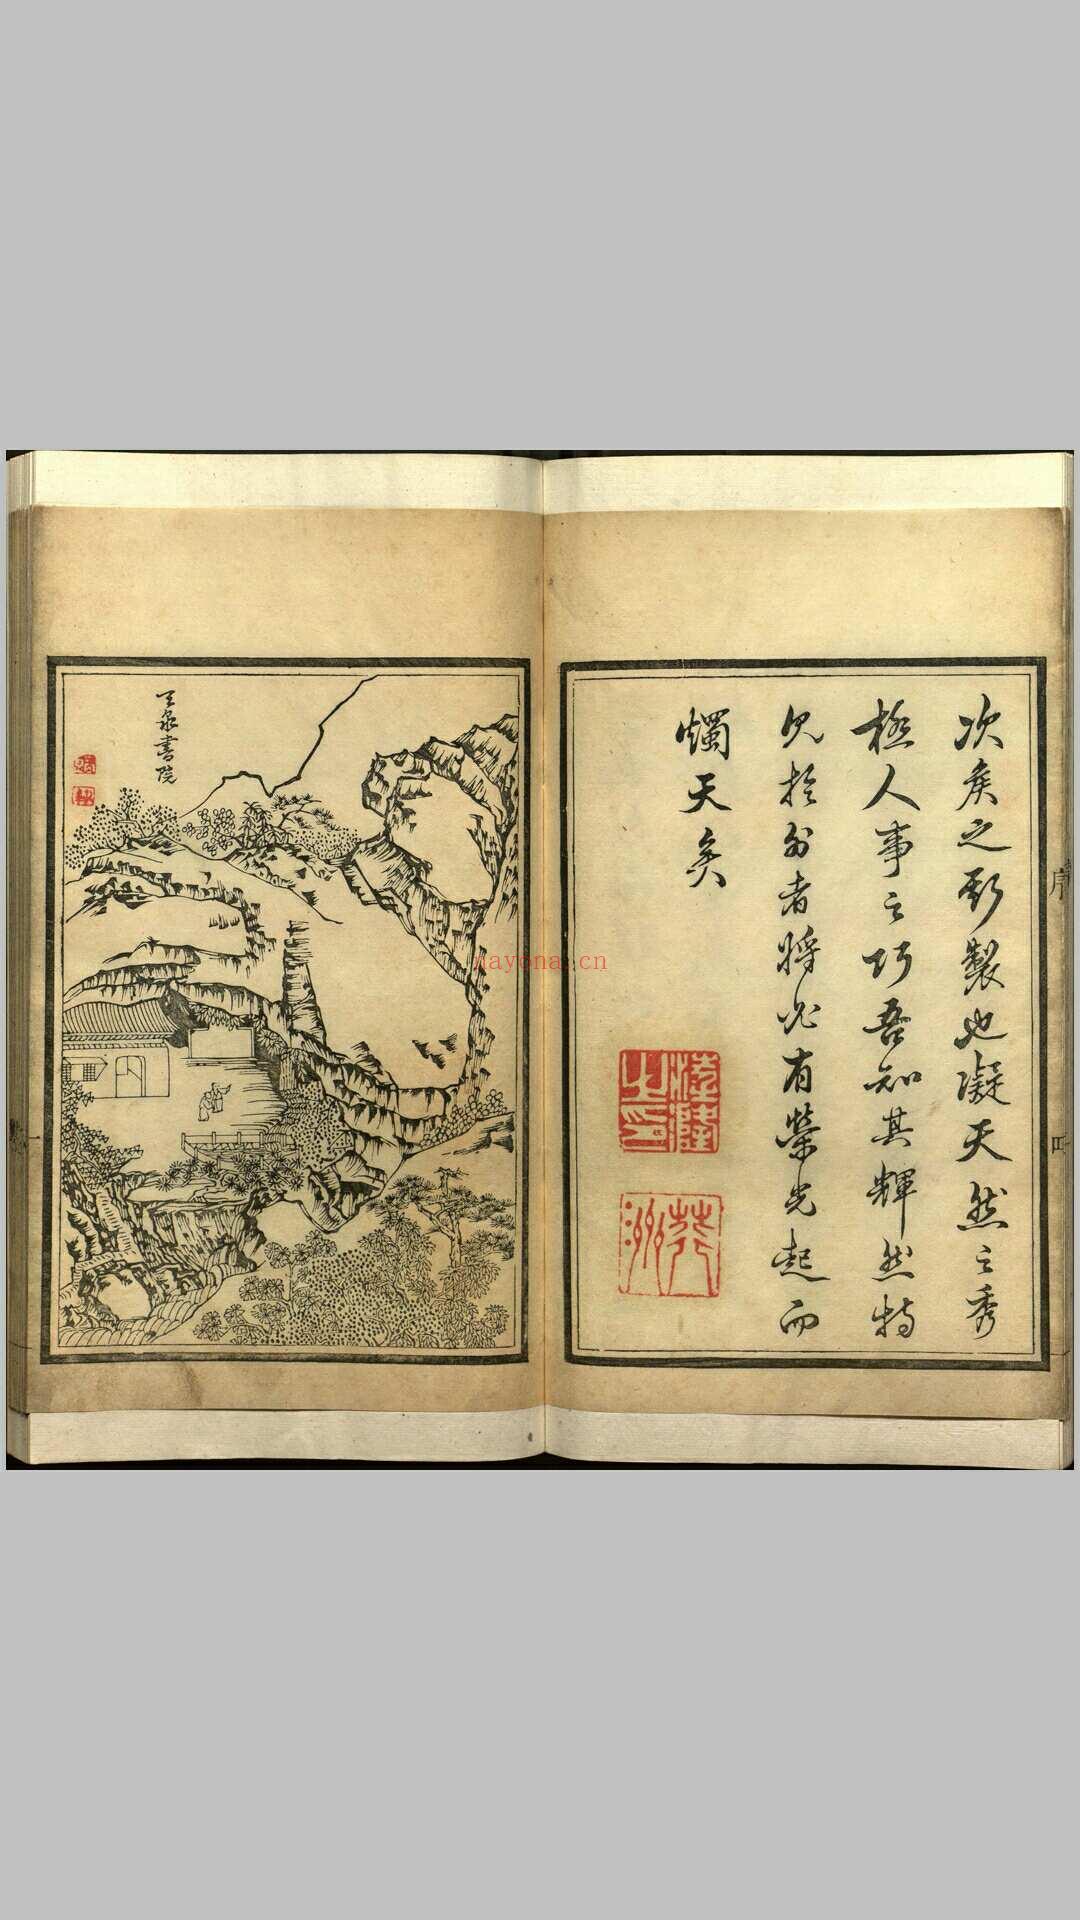 次侯之新製也凝天然之秀
極人事之巧吾知其輝然特
見於外者將必有榮光起而
燭天矣
序
四
天泉書院
nayona.cn